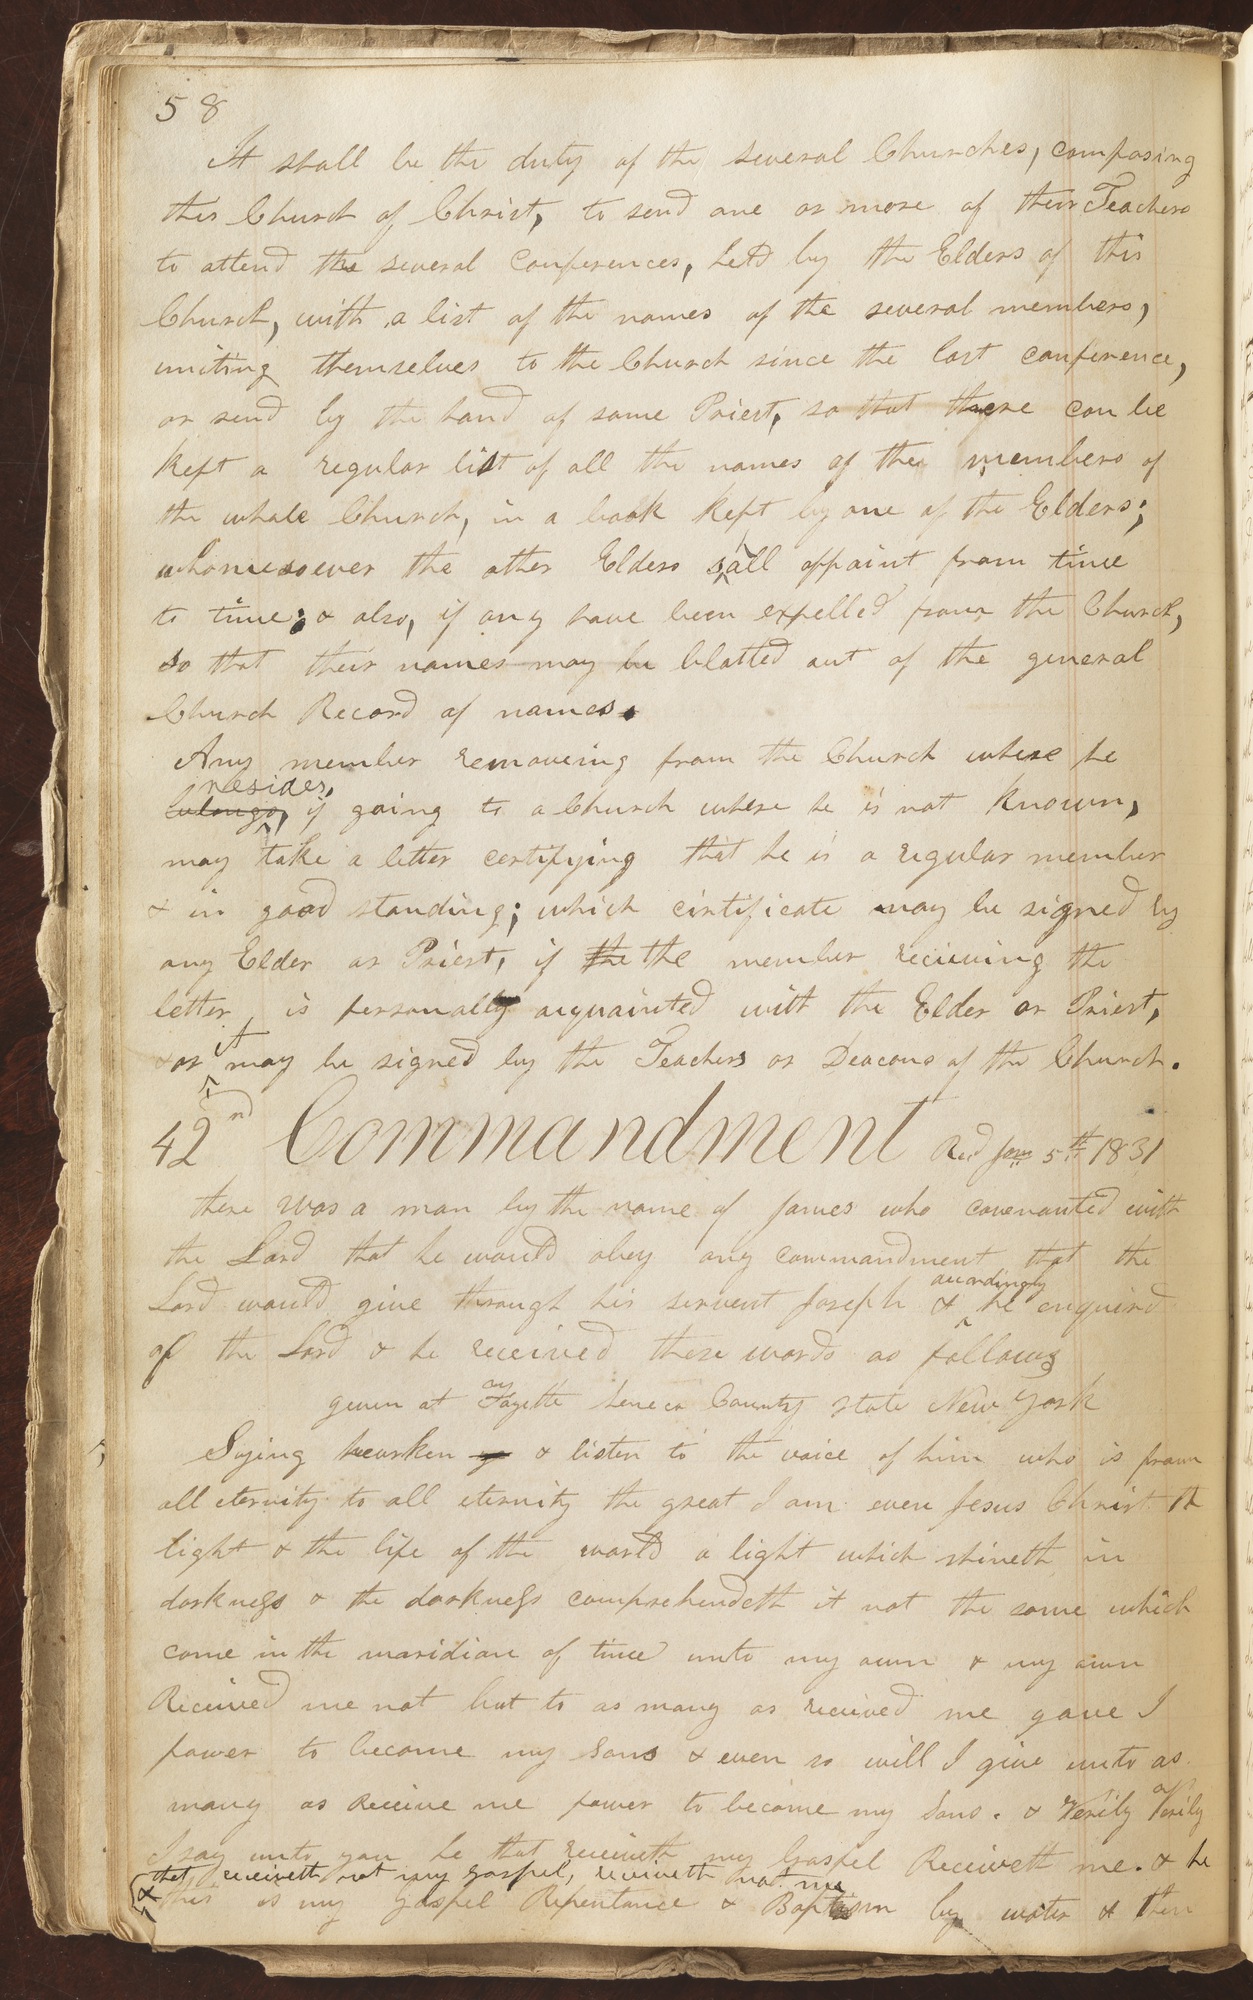 58
It shall be the duty of the several Churches, composing
this Church of Christ, to send one or more of their Teachers
to attend the several conferences, held by the Elders of this
Church, with a list of the names of the several members,
uniting themselves to the Church since the last conference,
or send by the hand of some Priest, so that there can be
kept a regular list of all the names of the members of
the whole Church, in a book kept by one of the Elders;
whomesoever the other Elders shall appoint from time
to time; & also, if any have been expelled from the Church,
so that their names may be blotted out of the general
Church Record of names.
Any member removeing from the Church where he
resides,
belongs, if going to a Church where he is not known,
may take a letter certifying that he is a regular member
& in good standing; which certificate may be signed by
any Elder or Priest, if the the member recieving the
letter is personally acquainted with the Elder or Priest,
it
or may be signed by the Teachers or Deacons of the Church.
42nd Commandment Recd Jan 5th 1831
there was a man by the name of James who covenanted with
the Lord that he would obey any commandment that the
accordingly
Lord would give through his servent Joseph & he enquired
of the Lord & he received these words as follows
given at Fayette Seneca County state New York
Saying hearken & listen to the voice of him who is from
all eternity to all eternity the great I am even Jesus Christ the
light & the life of the world a light which shineth in
darkness & the darkness comprehendeth it not the same which
came in the maridian of time unto my own & my own
Received me not but to as many as received me gave I
power to become my Sons & even so will I give unto as
many as Receive me power to become my Sons. & Verily Verily
I say unto you he that receiveth my Gospel Receiveth me. & he
that receiveth not my gospel, receiveth not me
& this is my gospel Repentance & Baptism by water & then